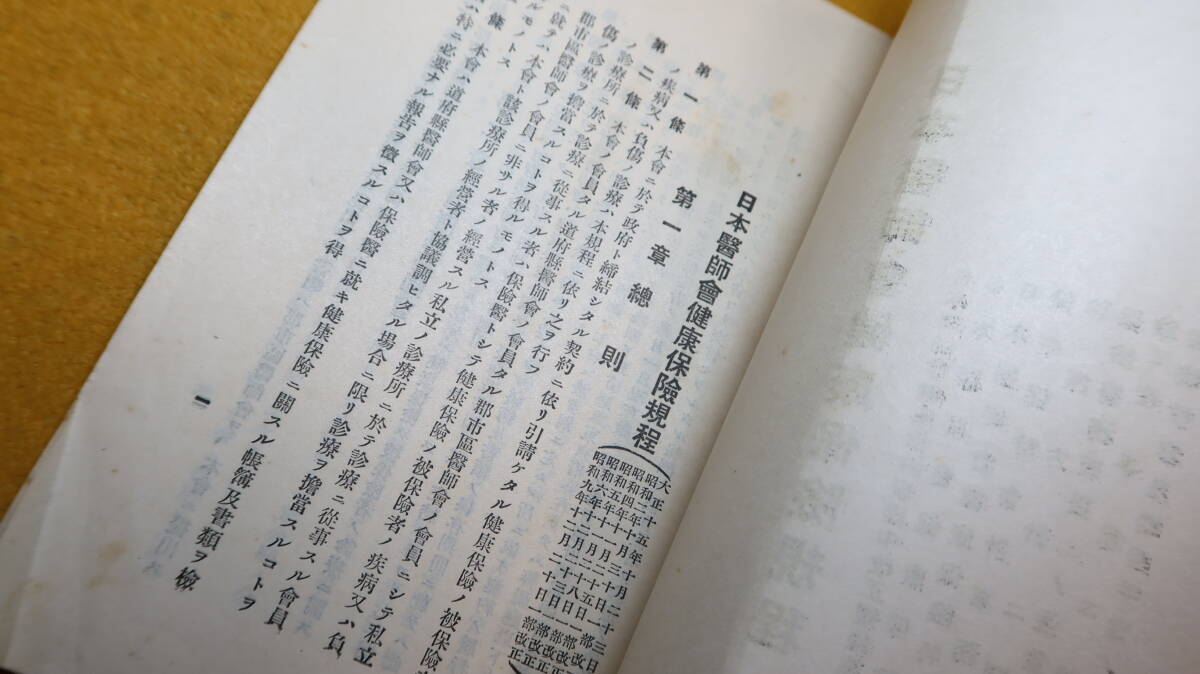 日本醫師會健康保險規程
大正十五年十月二十三日
昭和二年
昭和四年
昭和五年十一月二十五日一部改正
昭和六年十二月二十八日一部改正
昭和九年十二月二十日一部改正
第一章　總則
第一條　本會ニ於テ政府ト締結シタル契約ニ依リ引請ケタル健康保險ノ被保險
ノ疾病又ハ負傷ノ診療ハ本規程ニ依リ之ヲ行フ
第二條　本會ノ會員タル道府縣醫師會ノ會員タル郡市區醫師會ノ會員ニシテ私立
ノ診療所ニ於テ診療ニ從事スル者ハ保險醫トシテ健康保險ノ被保險者ノ疾病又ハ負
傷ノ診療ヲ擔當スルコトヲ得ルモノトス
郡市區醫師會ノ會員ニ非サル者ノ經營スル私立ノ診療所ニ於テ診療ニ從事スル會員
ニ就テハ本會ト該診療所ノ經營者ト協議調ヒタル場合ニ限リ診療ヲ擔當スルコトヲ
ルモノトス
條　本會ハ道府縣醫師會又ハ保險醫ニ就キ健康保險ニ關スル帳簿及書類ヲ檢
ハ特ニ必要ナル報告ヲ徵スルコトヲ得
一